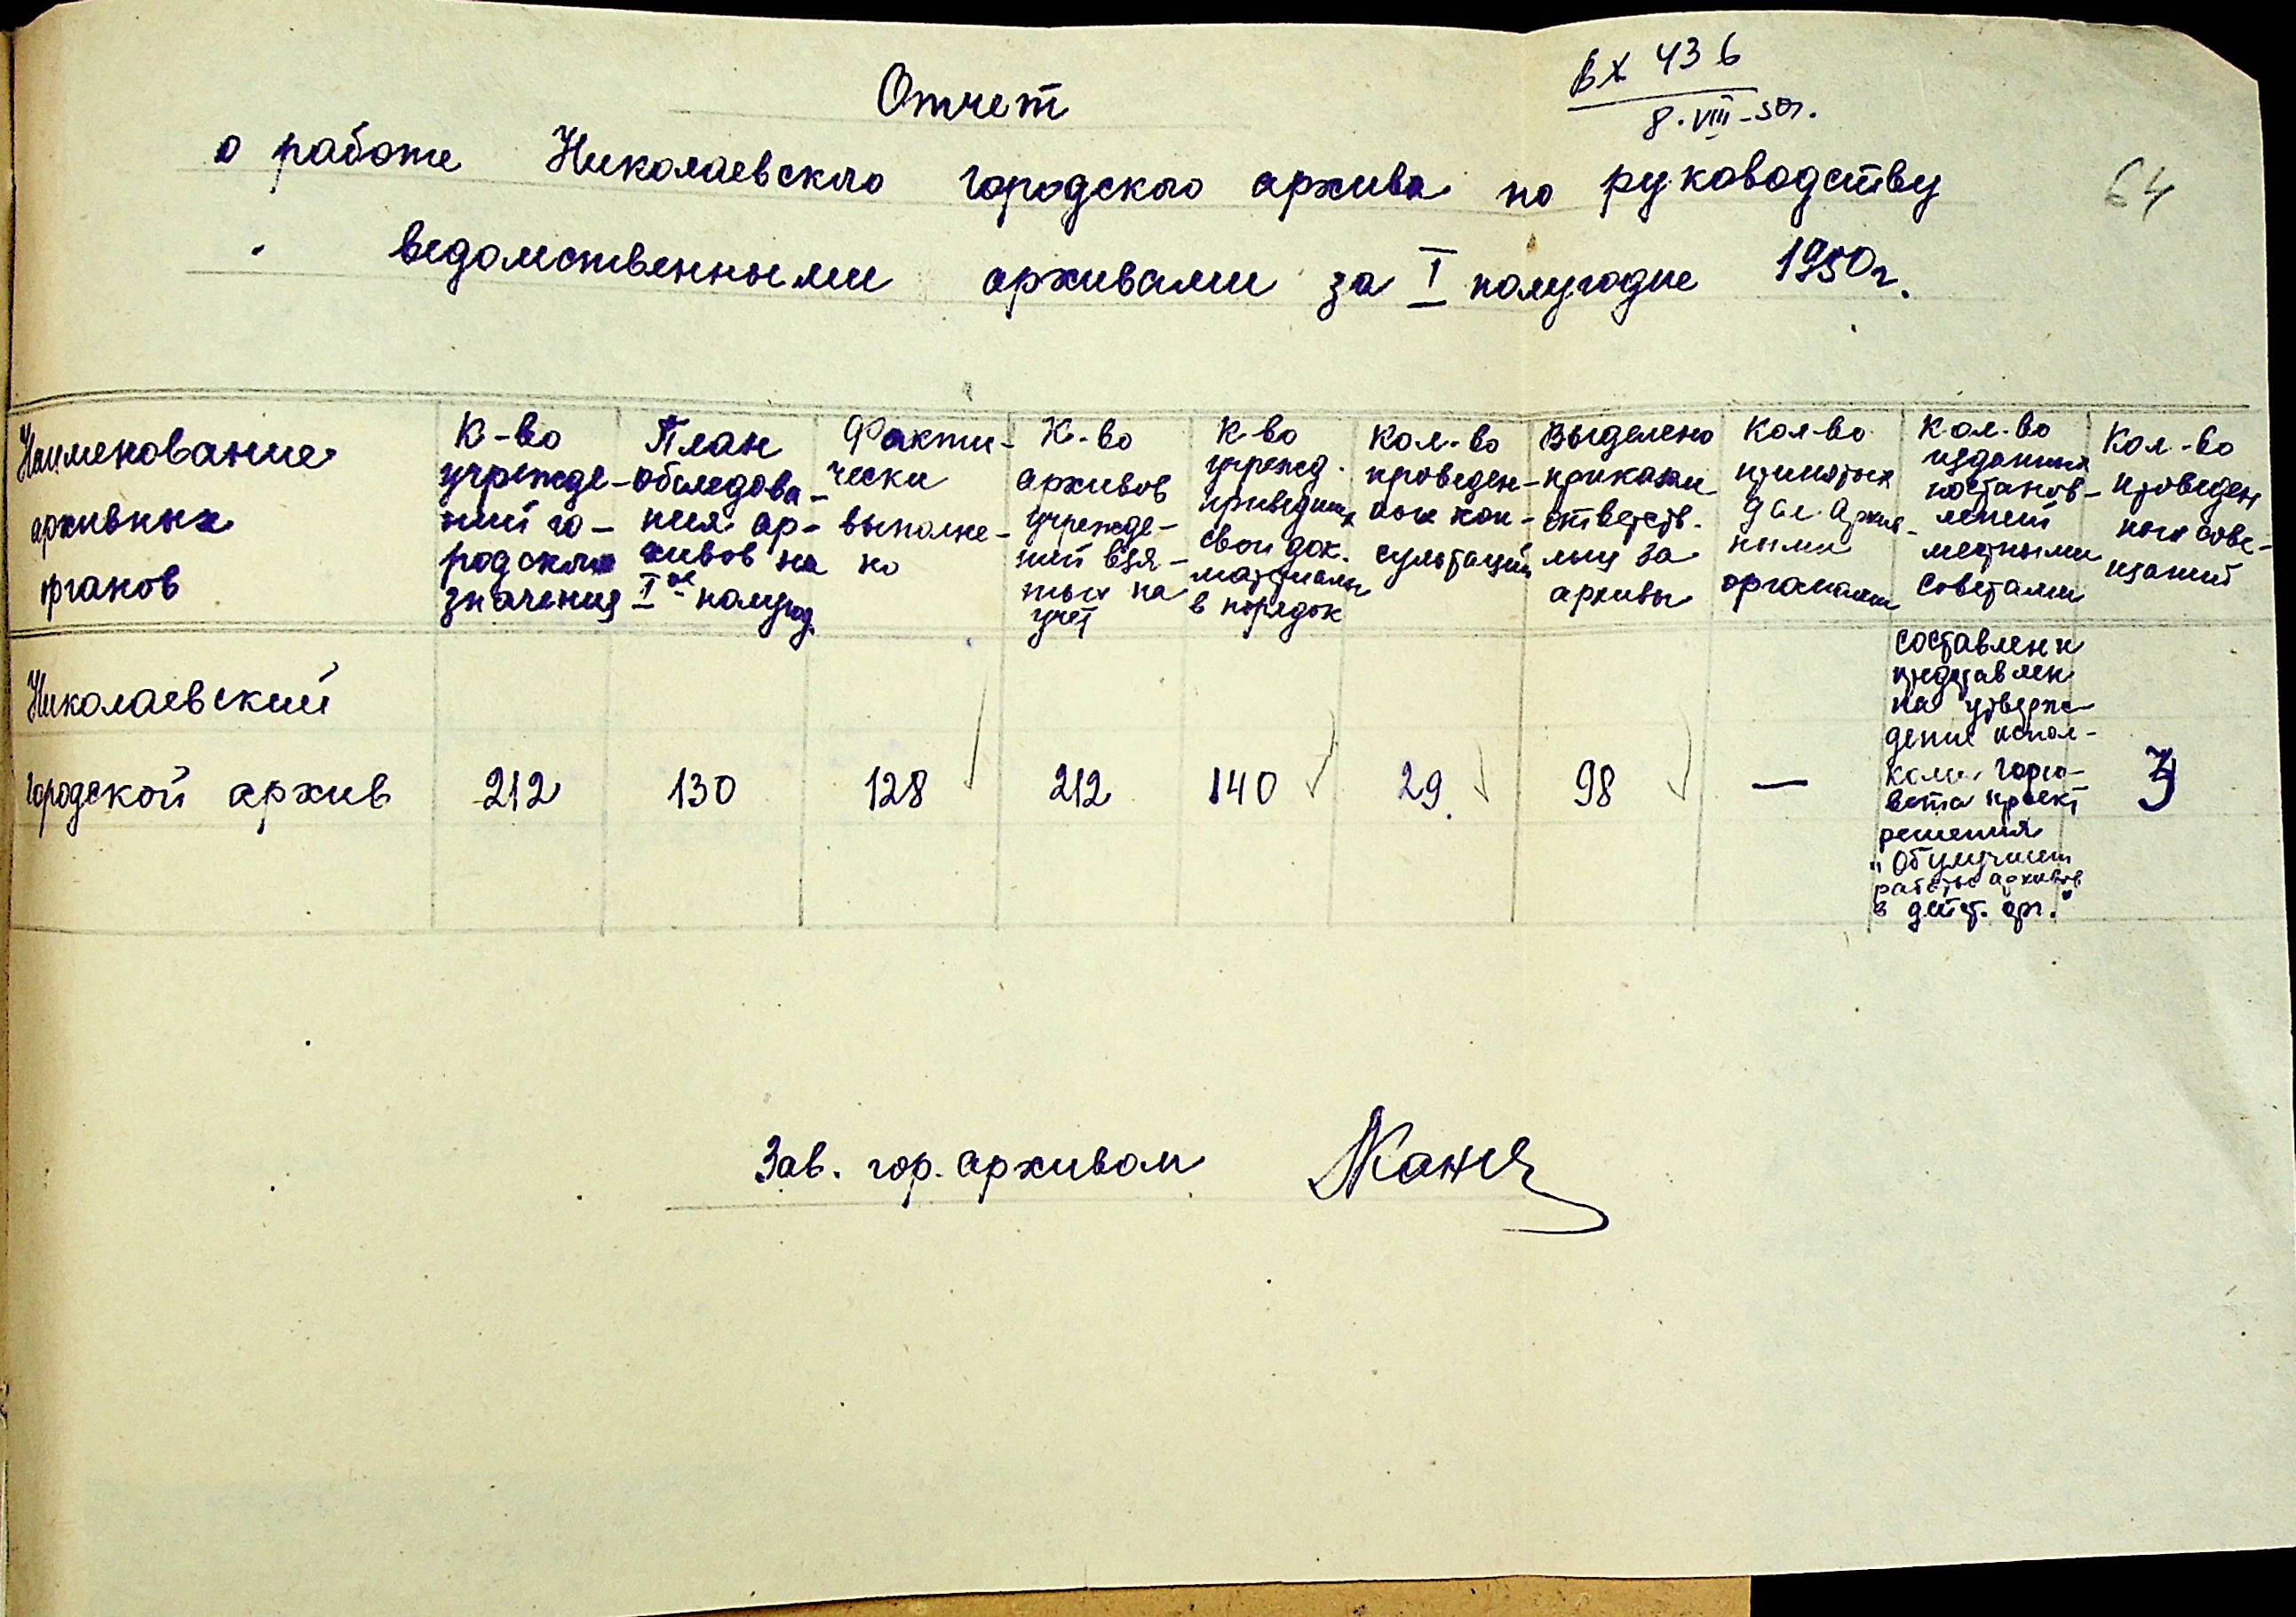 Отчет
вх 436
8.VIII-50г.
о работе Николаевского городского архива по руководству
64
ведомственными архивами за I полугодие 1950г.
Наименование
архивных
органов
К-во
учрежде-
ний го-
родского
значения
План
обследова-
ния ар-
хивов на
I ое полугод.
Факти-
чески
выполне-
но
К-во
архивов
учрежде-
ний взя-
тых на
учет
К-во
учрежд.
приведших
свои док.
материалы
в порядок
Кол-во
проведен-
ных кон-
сультаций
Выделено
приказом
ответств.
лиц за
архивы
Кол-во
принятых
дел архив-
ными
органами
Кол-во
изданных
постанов-
лений
местными
советами
Кол-во
проведен
ных сове-
щаний
Николаевский
городской архив
212
130
128
212
140
29
98
—
составлен и
представлен
на утверж-
дение испол-
кома горсо-
вета проект
решения
"Об улучшен
работы архивов
в дейст. орг."
3
Зав. гор. архивом